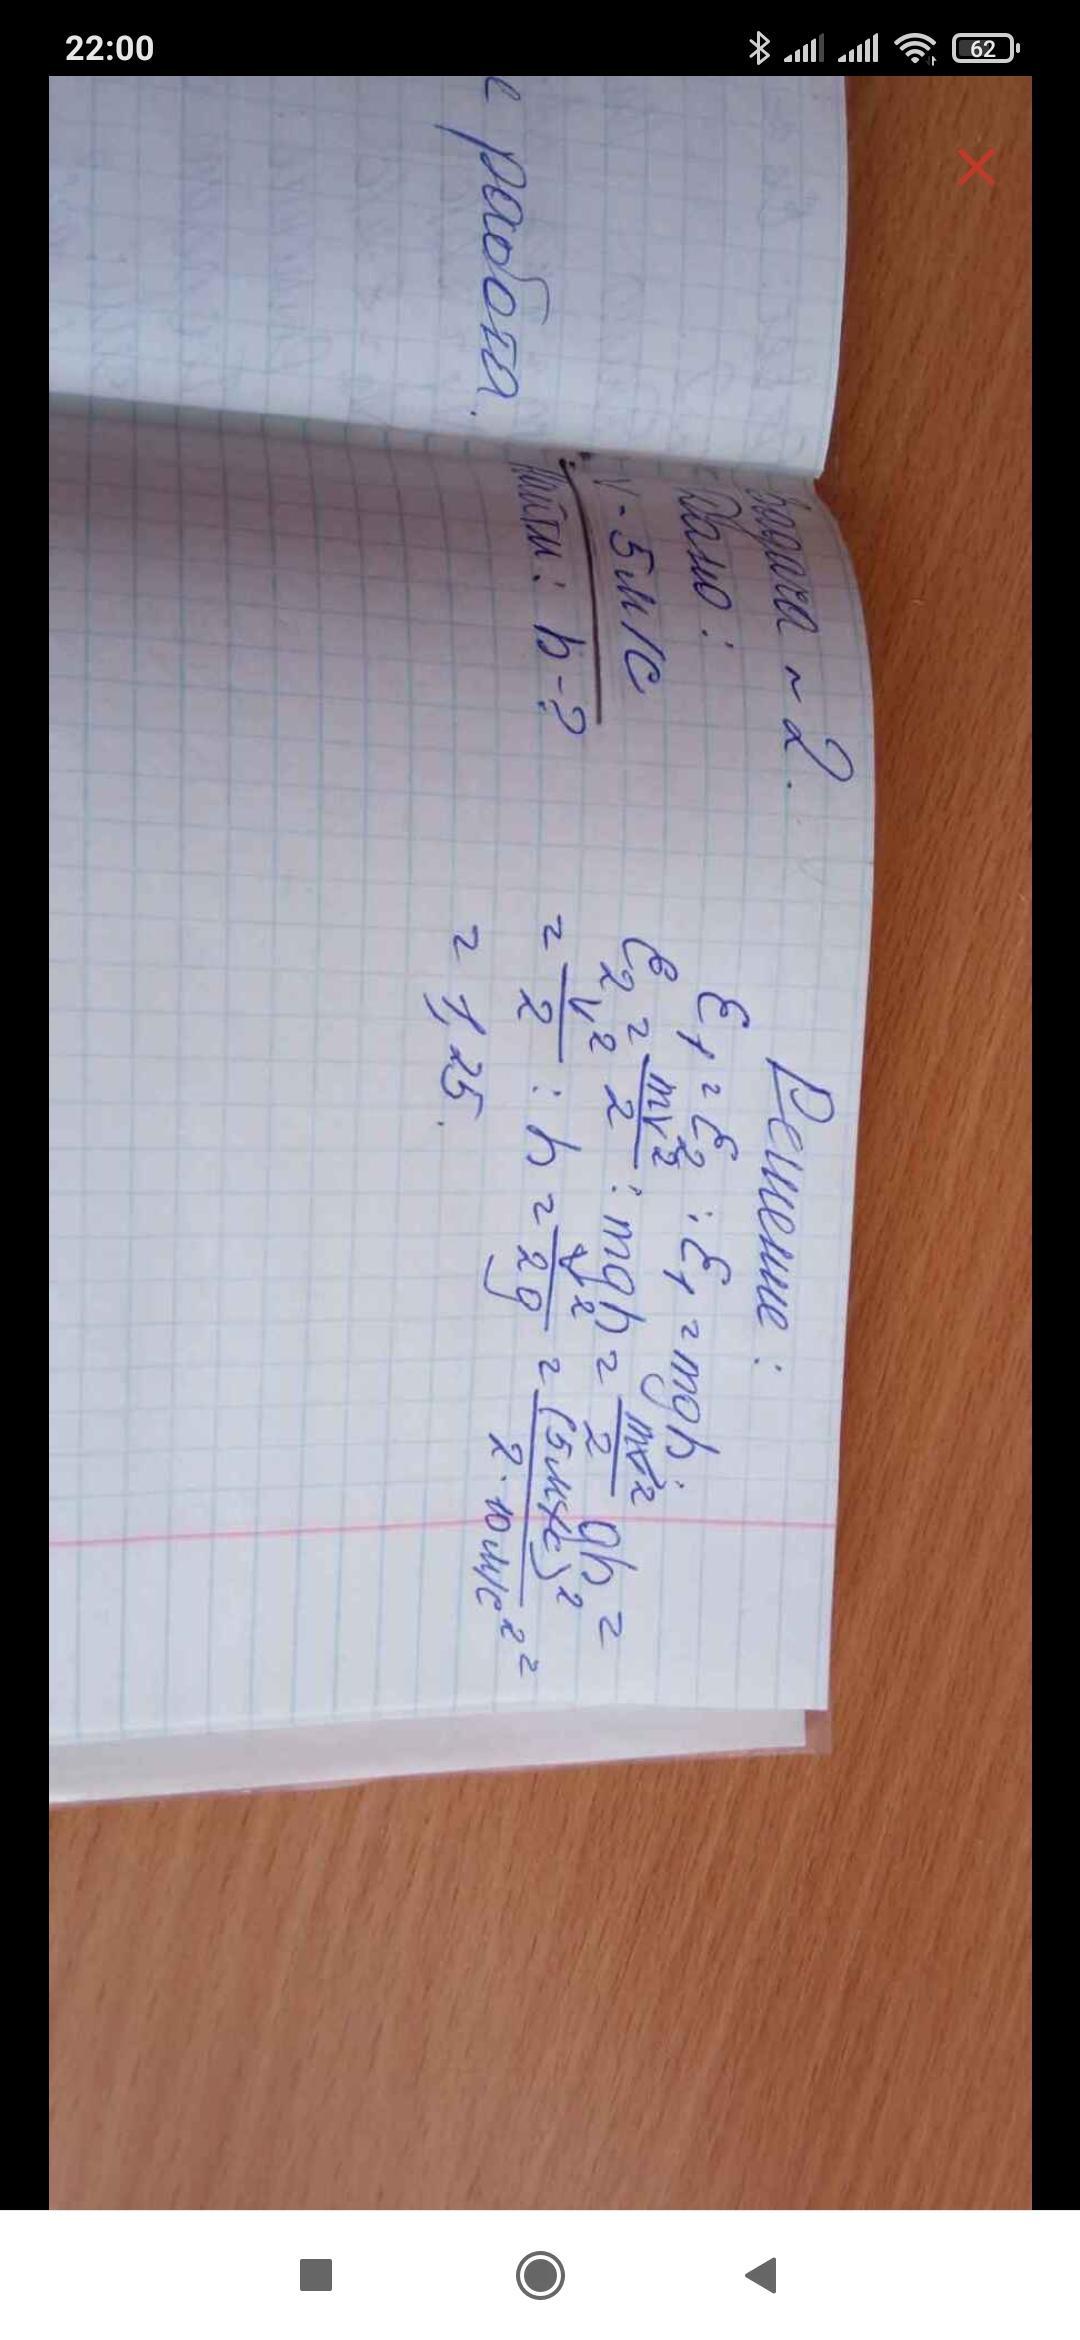 22:00
62
е работа.
Задача ~ 2.
Дано:
v - 5 м/с
Найти: h - ?
Решение:
E₁ = E₂ ; E₁ = mgh ;
E₂ = mv²/2 ; mgh = mv²/2 gh =
= v²/2 ; h = v²/2g = (5 м/с)²/2 · 10 м/с² =
= 1,25.